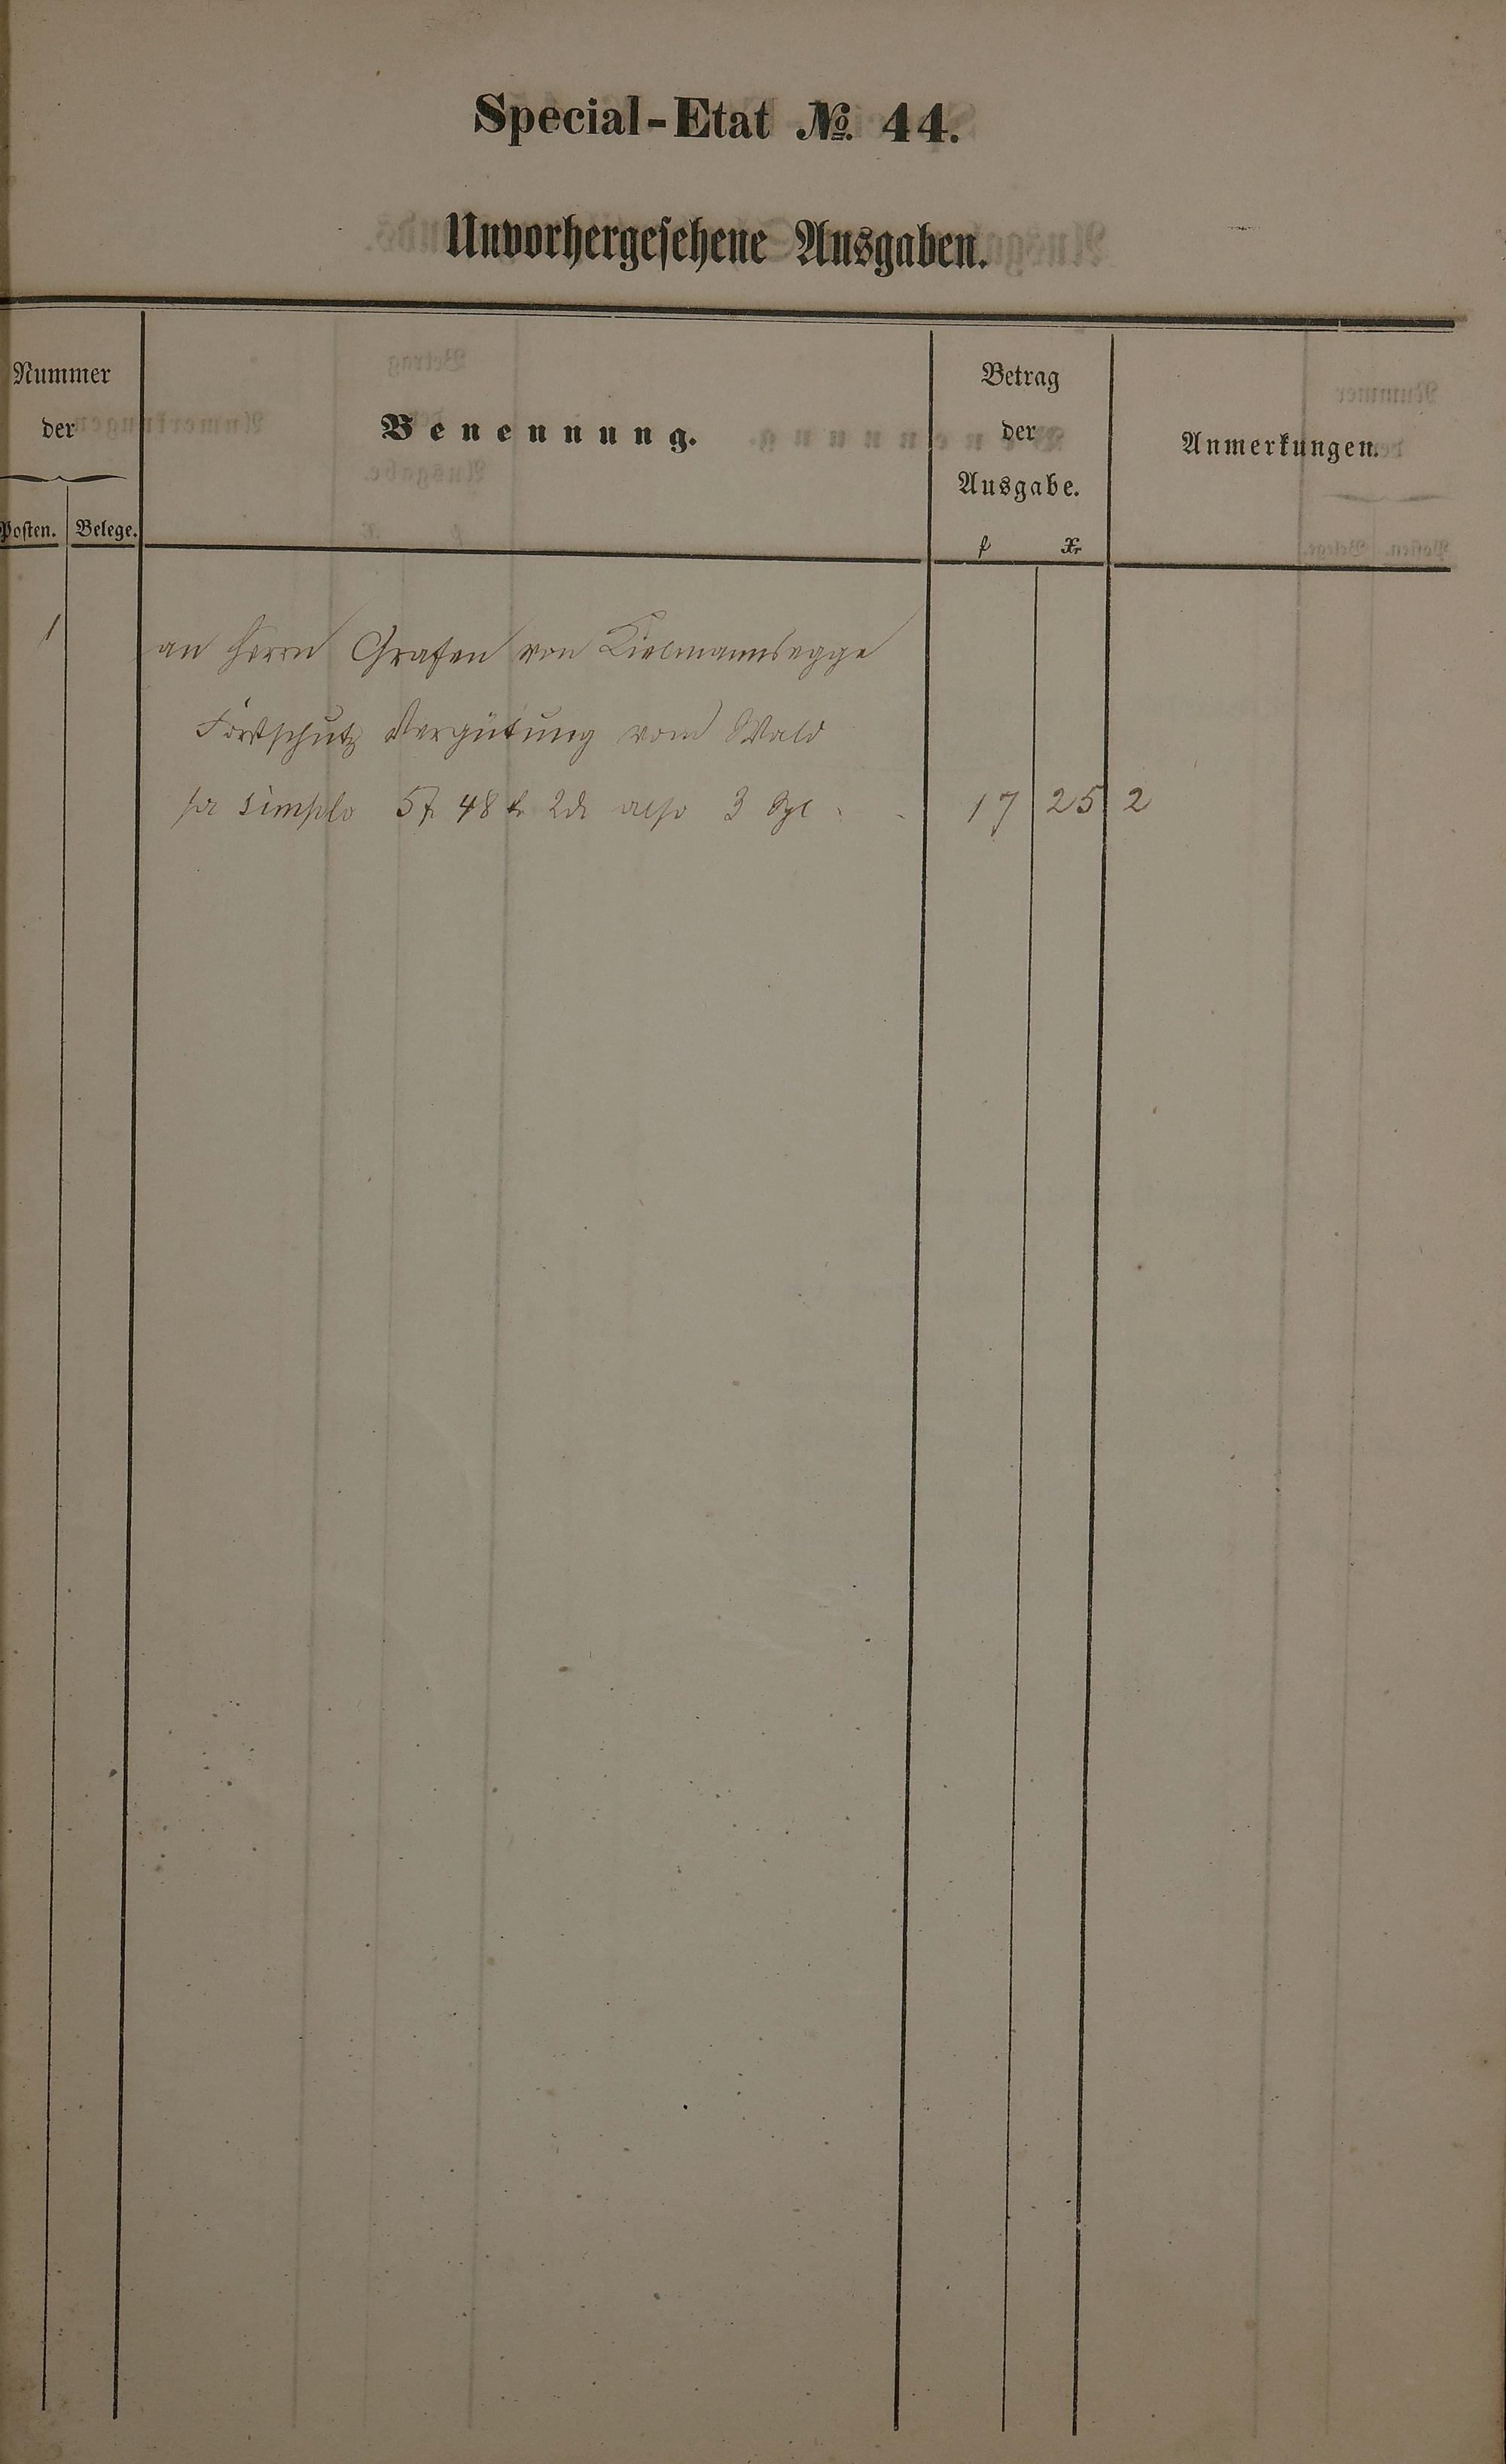 Special-Etat № 44.
Unvorhergesehene Ausgaben.
Nummer
der
Posten. Belege.
Benennung.
Betrag
der
Ausgabe.
f Xr
Anmerkungen.
1 an Herrn Grafen von Kielmannsegge
Forstschutz Vergütung vom Wald
pr simplo 5 f 48 Xr 2 dl also 3 Spl 17 25 2